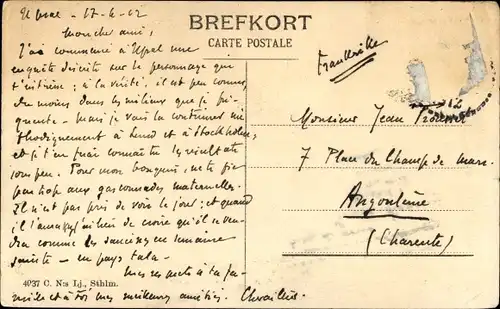 Upsal - 17-6-02
BREFKORT
CARTE POSTALE
Mon cher ami,
J'ai commencé à Upsal une
enquête discrète sur le personnage qui
t'intéresse ; à la vérité, il est peu connu,
du moins dans les milieux que je fré-
quente - Mais je vais la continuer mé-
thodiquement à Lund et à Stockholm,
et je t'en ferai connaître les résultats
sous peu. Pour mon bouquin, ne te fie
pas trop aux gasconnades maternelles.
Il n'est pas près de voir le jour ; et quand
il de croire qu'il se ven-
dra comme des saucisses en semaine
sainte - en pays
Mes respects à ta fa-
mille et à toi mes meilleures amitiés.
4037 C. N:s Lj., Sthlm.
Frankrike
Monsieur Jean
7 Place du Champ de mars
Angoulême
(Charente)